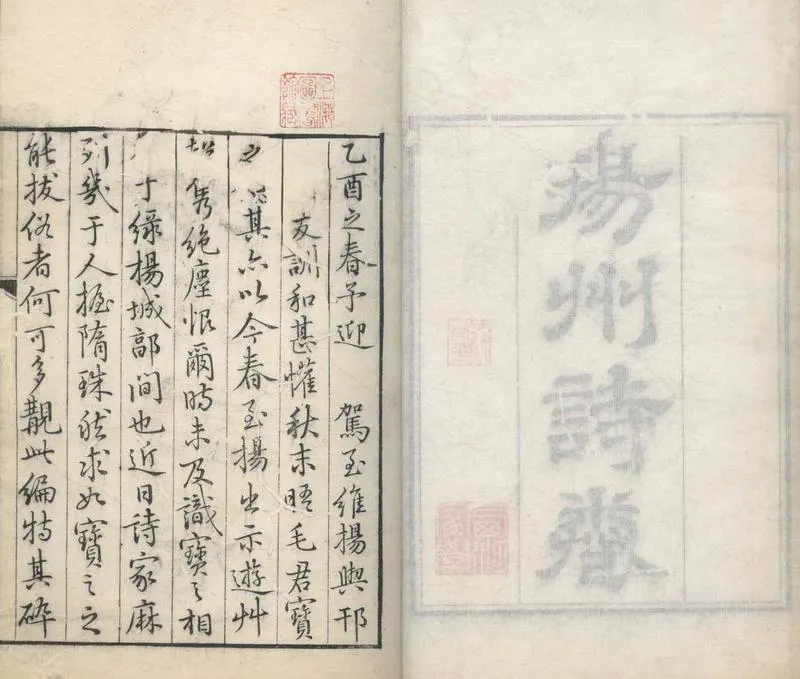 揚州詩
上海圖書館藏
乙酉之春予迎 駕至維揚與邗
友訓和甚懽秋末晤毛君寶
之 其亦以今春至揚出示遊艸
雋絕塵恨爾時未及識寶之相
于綠楊城郭間也近日詩家麻
列幾于人握隋珠然求如寶之之
能拔俗者何可多覯此編特其碎